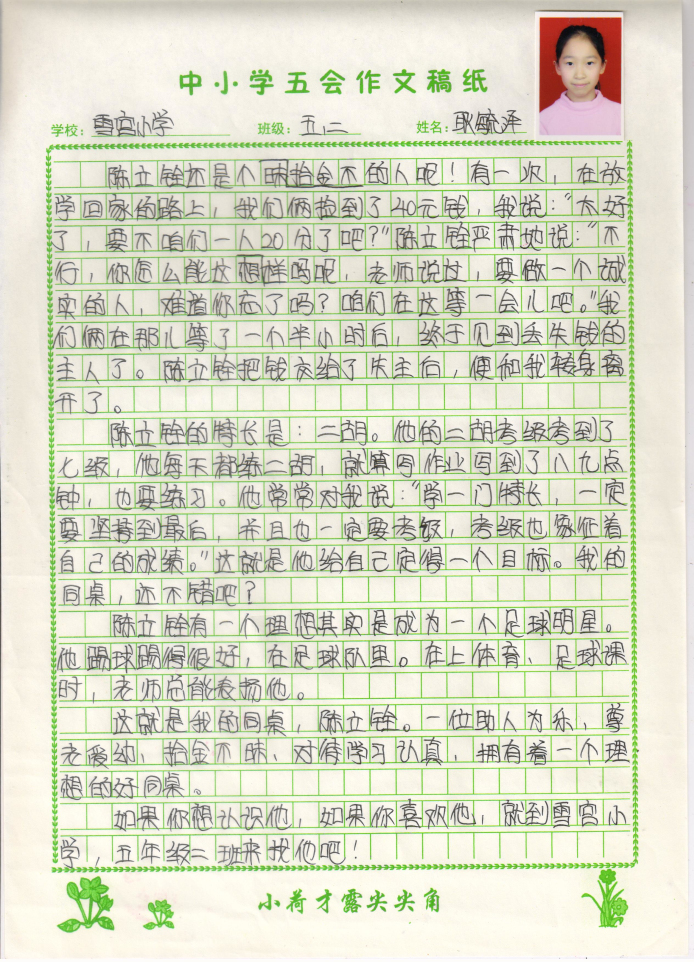 中小学五会作文稿纸
学校：雪宫小学 班级：五、二 姓名：耿毓泽
陈立铨还是个昧拾金不的人呢！有一次，在放
学回家的路上，我们俩捡到了40元钱，我说：“太好
了，要不咱们一人20分了吧？”陈立铨严肃地说：“不
行，你怎么能这想样吗呢，老师说过，要做一个诚
实的人，难道你忘了吗？咱们在这等一会儿吧。”我
们俩在那儿等了一个半小时后，终于见到丢失钱的
主人了。陈立铨把钱交给了失主后，便和我转身离
开了。
陈立铨的特长是：二胡。他的二胡考级考到了
七级，他每天都练二胡，就算写作业写到了八九点
钟，也要练习。他常常对我说：“学一门特长，一定
要坚持到最后，并且也一定要考级，考级也象征着
自己的成绩。”这就是他给自己定得一个目标。我的
同桌，还不错吧？
陈立铨有一个理想其实是成为一个足球明星。
他踢球踢得很好，在足球队里。在上体育、足球课
时，老师总能表扬他。
这就是我的同桌，陈立铨。一位助人为乐，尊
老爱幼、拾金不昧、对待学习认真，拥有着一个理
想的好同桌。
如果你想认识他，如果你喜欢他，就到雪宫小
学，五年级二班来找他吧！
小荷才露尖尖角